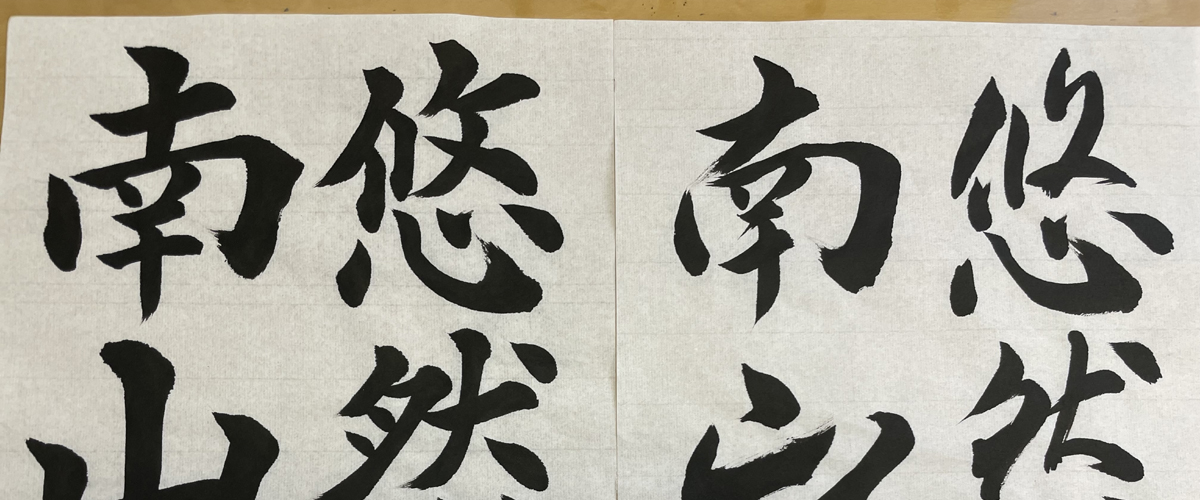 悠然
南山
悠然
南山